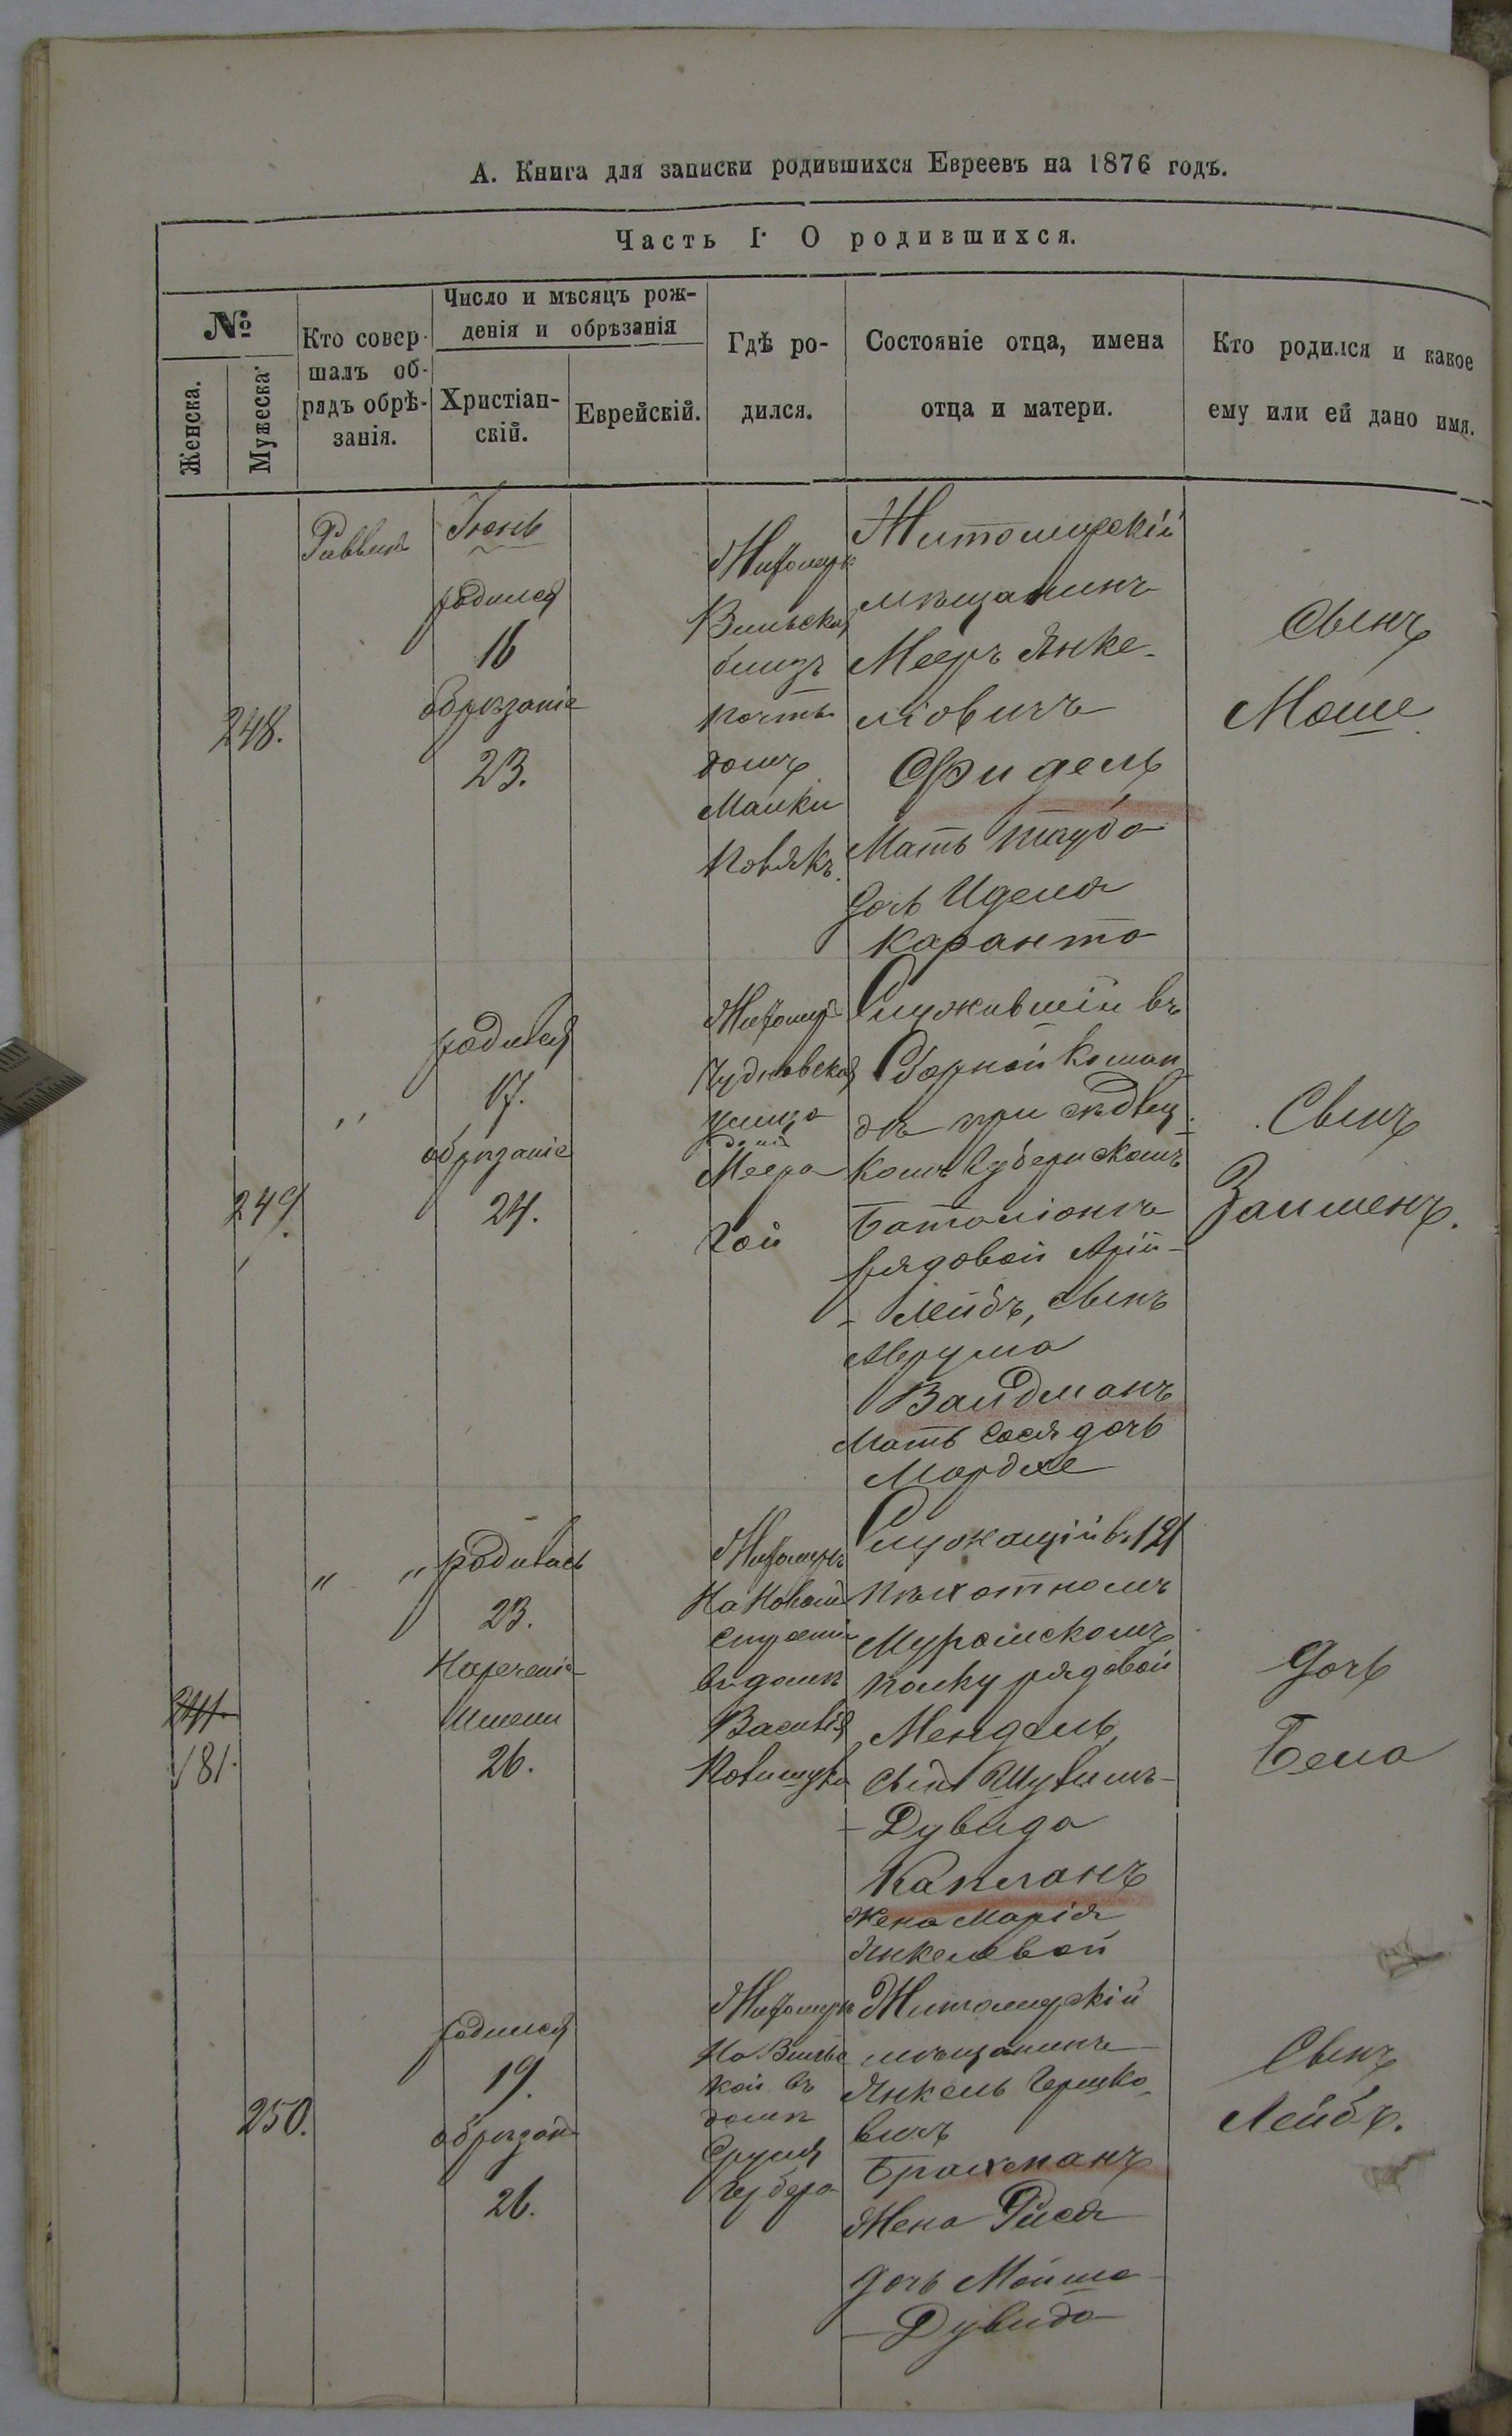 А. Книга для записки родившихся Евреевъ на 1876 годъ.
Часть I. О родившихся.
№
Женска.
Мужеска
Кто совер-
шалъ об-
рядъ обрѣ-
занія.
Число и мѣсяцъ рож-
денія и обрѣзанія
Христіан-
скій.
Еврейскій.
Гдѣ ро-
дился.
Состояніе отца, имена
отца и матери.
Кто родился и какое
ему или ей дано имя.
248.
Раввинъ
Іюнь
родился
16
обрѣзаніе
23.
Житомиръ
Вильская
близъ
почты
домъ
Малки
Новякъ.
Житомирскій
мѣщанинъ
Мееръ Янке-
ліовичъ
Фидель
Мать Тауба
дочь Иделя
Каранта
Сынъ
Моше
249.
"
родился
17.
обрѣзаніе
24.
Житомиръ
Чудновская
улица
домъ
Меера
Гой
Служившій въ
Сборной коман
дѣ при
комъ Губернскомъ
баталіонѣ
рядовой Арій-
-Лейбъ, сынъ
Аврума
Вайдманъ
Мать Сося дочь
Мордхе
Сынъ
Залменъ.
181.
" "
родилась
23.
Нареченіе
имени
26.
Житомиръ
На Новой
строеніи
въ домѣ
Василія
Служащій въ 121
пѣхотномъ
Муромскомъ
полку рядовой
Мендель,
сынъ Шулимъ-
-Дувида
Капланъ
жена Марія
Янкелевой
Дочь
Бейла
250.
родился
19.
обрѣзан
26.
Житомиръ
На Вильс
кой въ
домѣ
Сруля
Гербера
Житомирскій
мѣщанинъ
Янкель Гершко-
вичъ
Брахманъ
Жена Рися
дочь Мойше
-Дувида
Сынъ
Лейбъ.